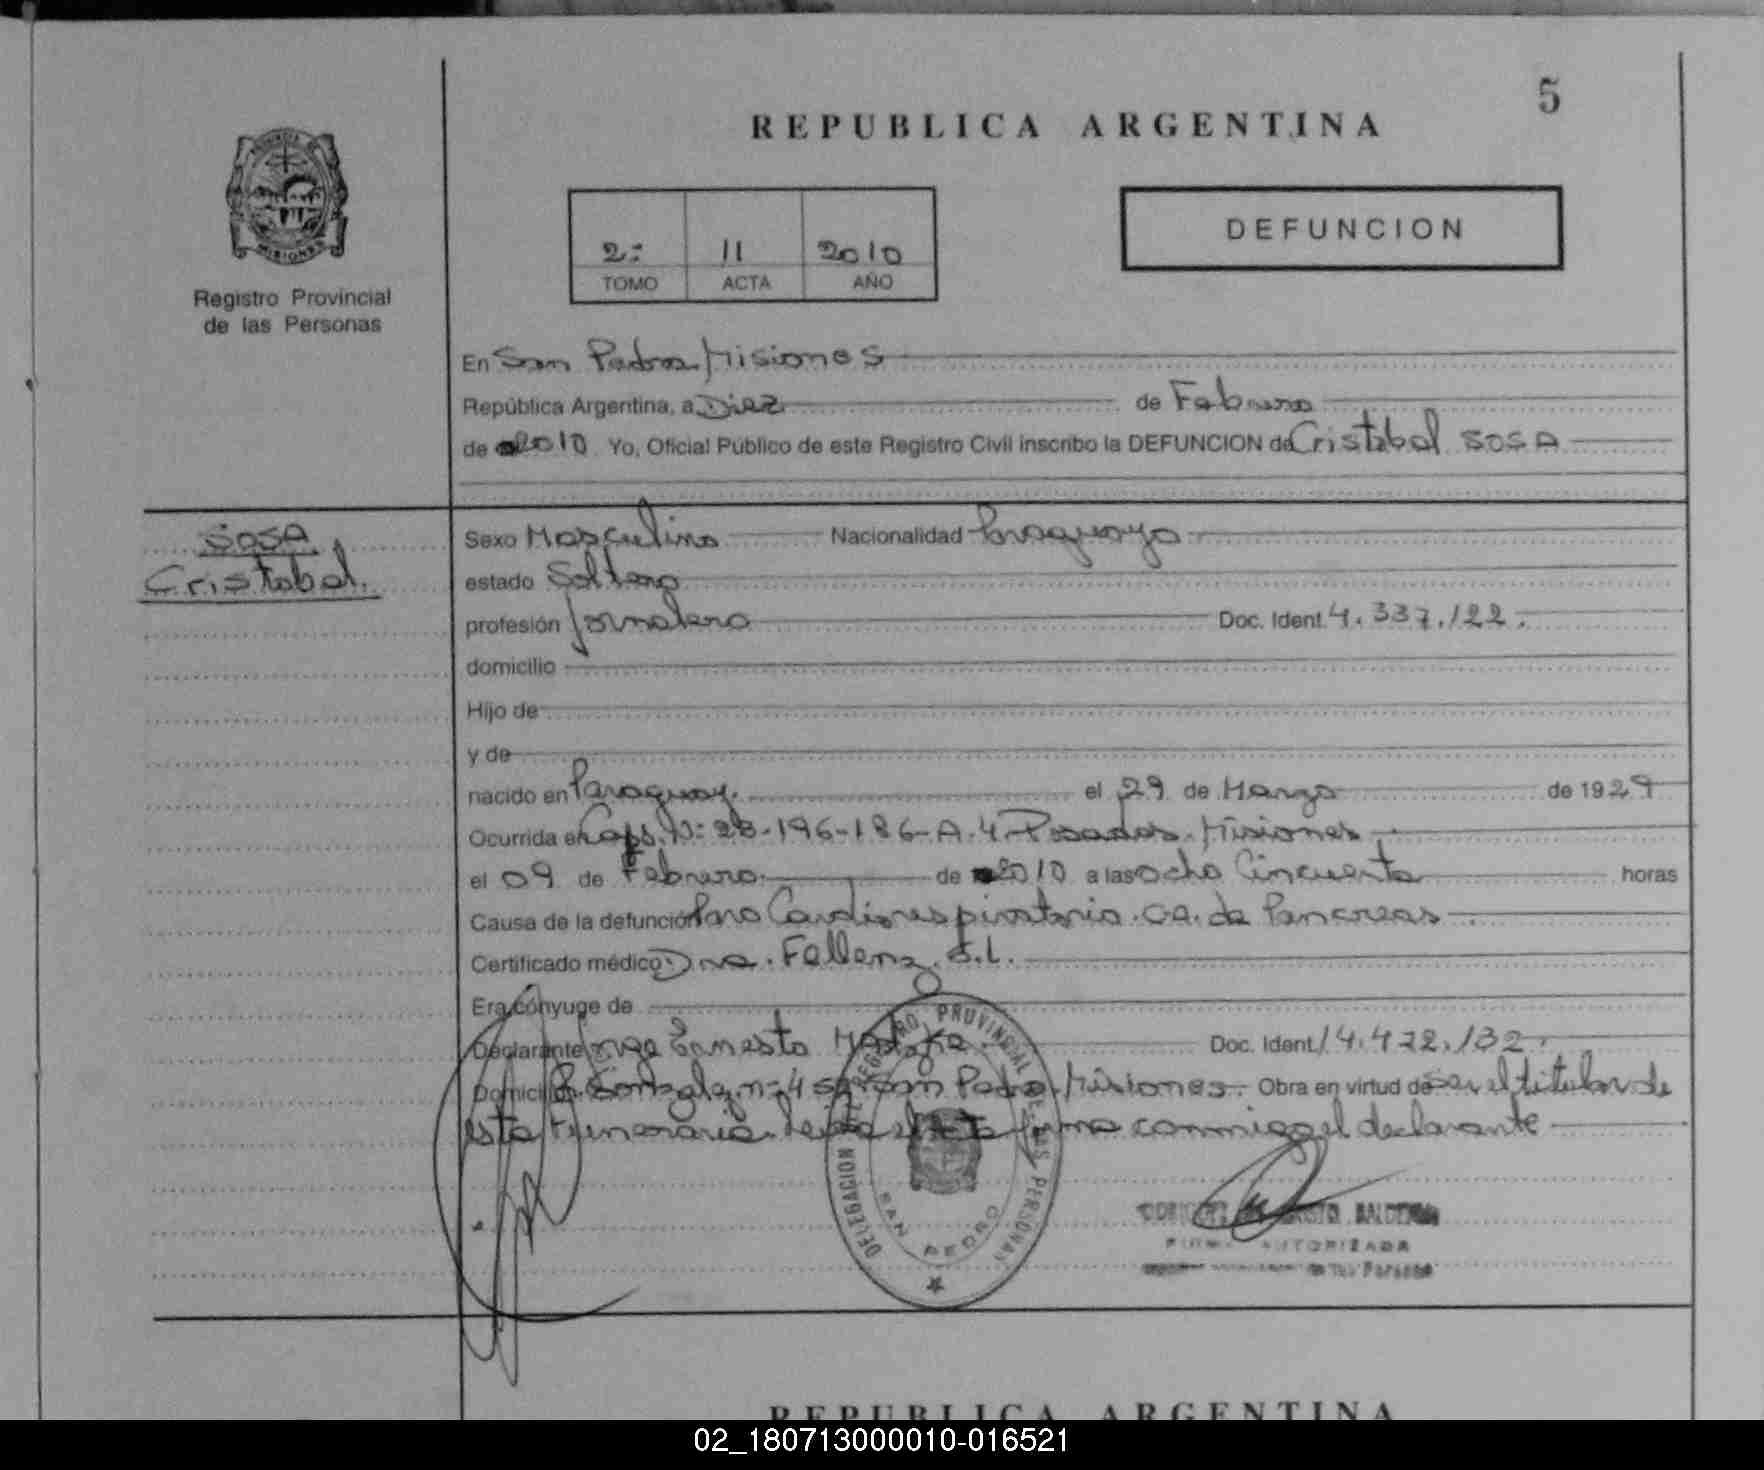 5
REPUBLICA ARGENTINA
2º 11 2010
TOMO ACTA AÑO
DEFUNCION
PROVINCIA
MISIONES
Registro Provincial
de las Personas
En San Pedro Misiones
República Argentina, a Diez de Febrero
de 2010 Yo, Oficial Público de este Registro Civil inscribo la DEFUNCION de Cristobal SOSA
SOSA
Cristobal.
Sexo Masculino Nacionalidad Paraguaya
estado Soltero
profesión Jornalero Doc. Ident. 4.337.122.
domicilio
Hijo de
y de
nacido en Paraguay. el 29 de Marzo de 1929
Ocurrida en Caps. Nº 28-196-186-A.4 Posadas. Misiones
el 09 de Febrero de 2010 a las ocho Cincuenta horas
Causa de la defunción Paro Cardiorespiratorio. CA. de Pancreas
Certificado médico Dra. S.L.
Era cónyuge de
Declarante Jorge Ernesto Doc. Ident. 14.472.132.
Domicilio nº 459 San Pedro Misiones. Obra en virtud de ser el titular de
esta funeraria. Leida el acta firma conmigo el declarante
DELEGACION DEL REGISTRO PROVINCIAL DE LAS PERSONAS
SAN PEDRO
FIRMA AUTORIZADA
REPUBLICA ARGENTINA
02_180713000010-016521